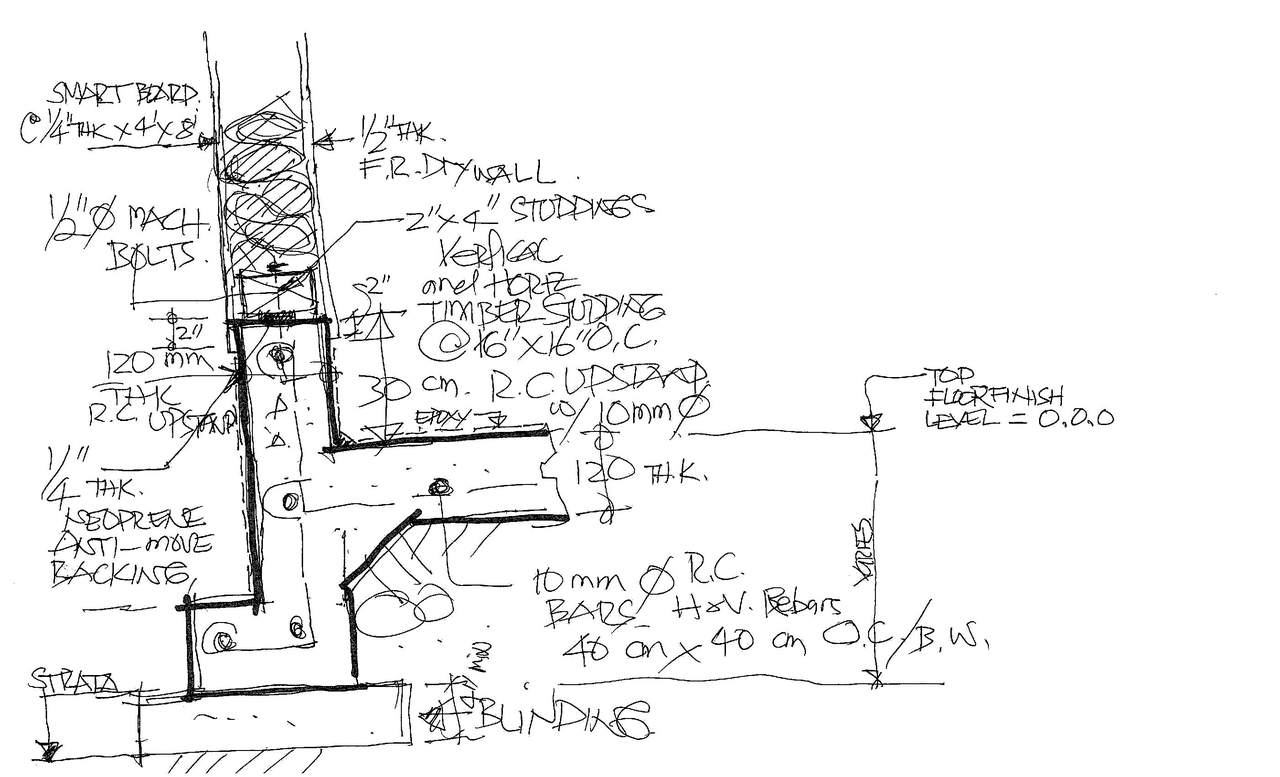 SMART BOARD.
@ 1/4" THK X 4' X 8'
1/2" THK.
F.R. DRYWALL.
1/2" Ø MACH.
BOLTS.
2" X 4" STUDDINGS
VERTICAL
and HORIZ
TIMBER STUDDING
@ 16" X 16" O.C.
2"
2"
120 mm
THK
R.C. UPSTAND
30 cm. R.C. UPSTAND
w/ 10mm Ø
EPOXY
TOP
FLOOR FINISH
LEVEL = 0.0.0
120 TH.K.
1/4" THK.
NEOPRENE
ANTI-MOVE
BACKING
VARIES
10mm Ø R.C.
BARS- H&V. Rebars
40 cm x 40 cm O.C./B.W.
STRATA
4" BLINDING